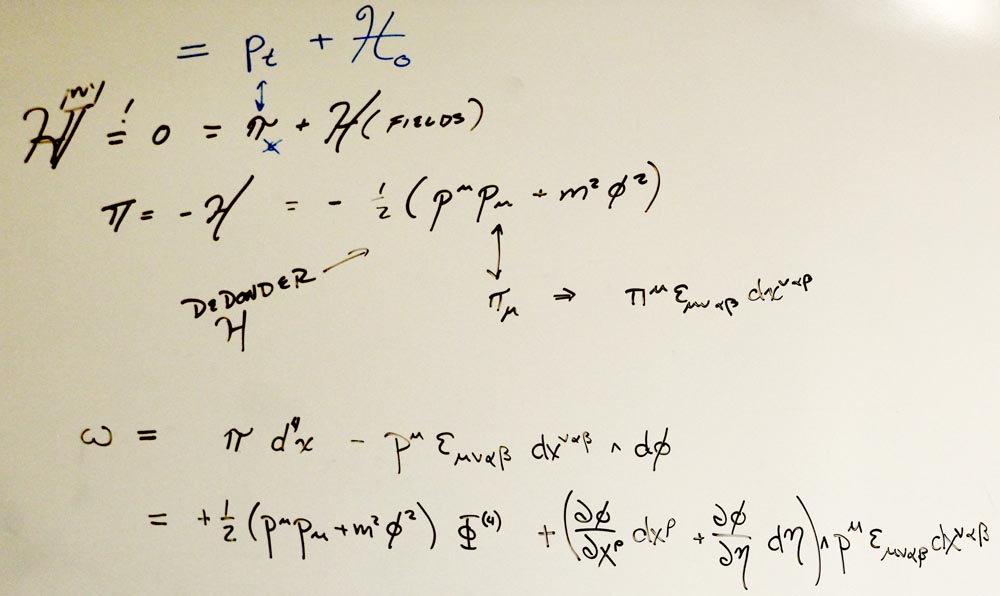 = p_t + ℋ_0
↕
ℋ =! 0 = π_* + ℋ(FIELDS)
π = -ℋ = - 1/2 (p^μ p_μ + m²φ²)
DEDONDER → ↕
ℋ π_μ ⇒ π^μ ε_{μναβ} dx^{ναβ}
ω = π d⁴x - p^μ ε_{μναβ} dx^{ναβ} ∧ dφ
= + 1/2 (p^μ p_μ + m²φ²) Φ^{(4)} + (∂φ/∂x^ρ dx^ρ + ∂φ/∂η dη) ∧ p^μ ε_{μναβ} dx^{ναβ}